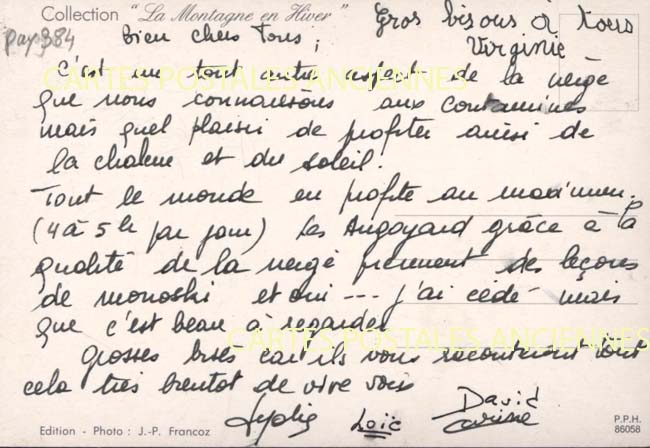 Collection "La Montagne en Hiver"
Gros bisous à tous
Virginie
pay384
Bien chers Tous ;
C'est un tout autre aspect de la neige
que nous connaissons aux contamines
mais quel plaisir de profiter aussi de
la chaleur et du soleil.
Tout le monde en profite au maximum.
(4 à 5h par jour) Les Angoyard grâce à la
qualité de la neige prennent des leçons
de monoski et oui --- j'ai cédé mais
que c'est beau à regarder
Grosses bises car ils vous raconteront tout
cela très bientot de vive voix
Lydie Loïc David
Carine
CARTES POSTALES ANCIENNES
CARTES POSTALES ANCIENNES
Edition - Photo : J.-P. Francoz
P.P.H.
86058